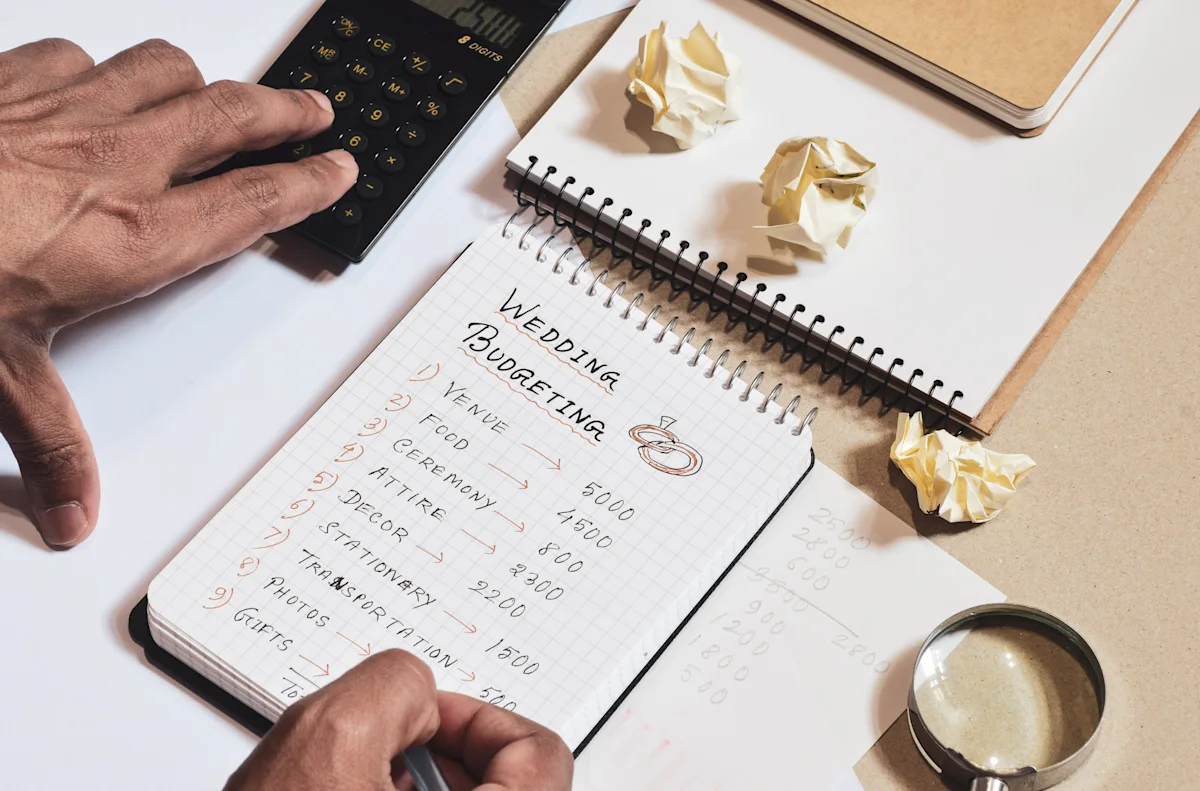 8 DIGITS
ON/C CE +/- √
M- M+ %
7 8 9 ÷
6 ×
2 −
+
WEDDING
BUDGETING
1) VENUE → 5000
2) FOOD → 4500
3) CEREMONY → 800
4) ATTIRE → 2300
5) DECOR → 2200
6) STATIONARY → 1500
7) TRANSPORTATION → 500
8) PHOTOS →
9) GIFTS →
2500
2800
600
900 2800
1200
1800
500